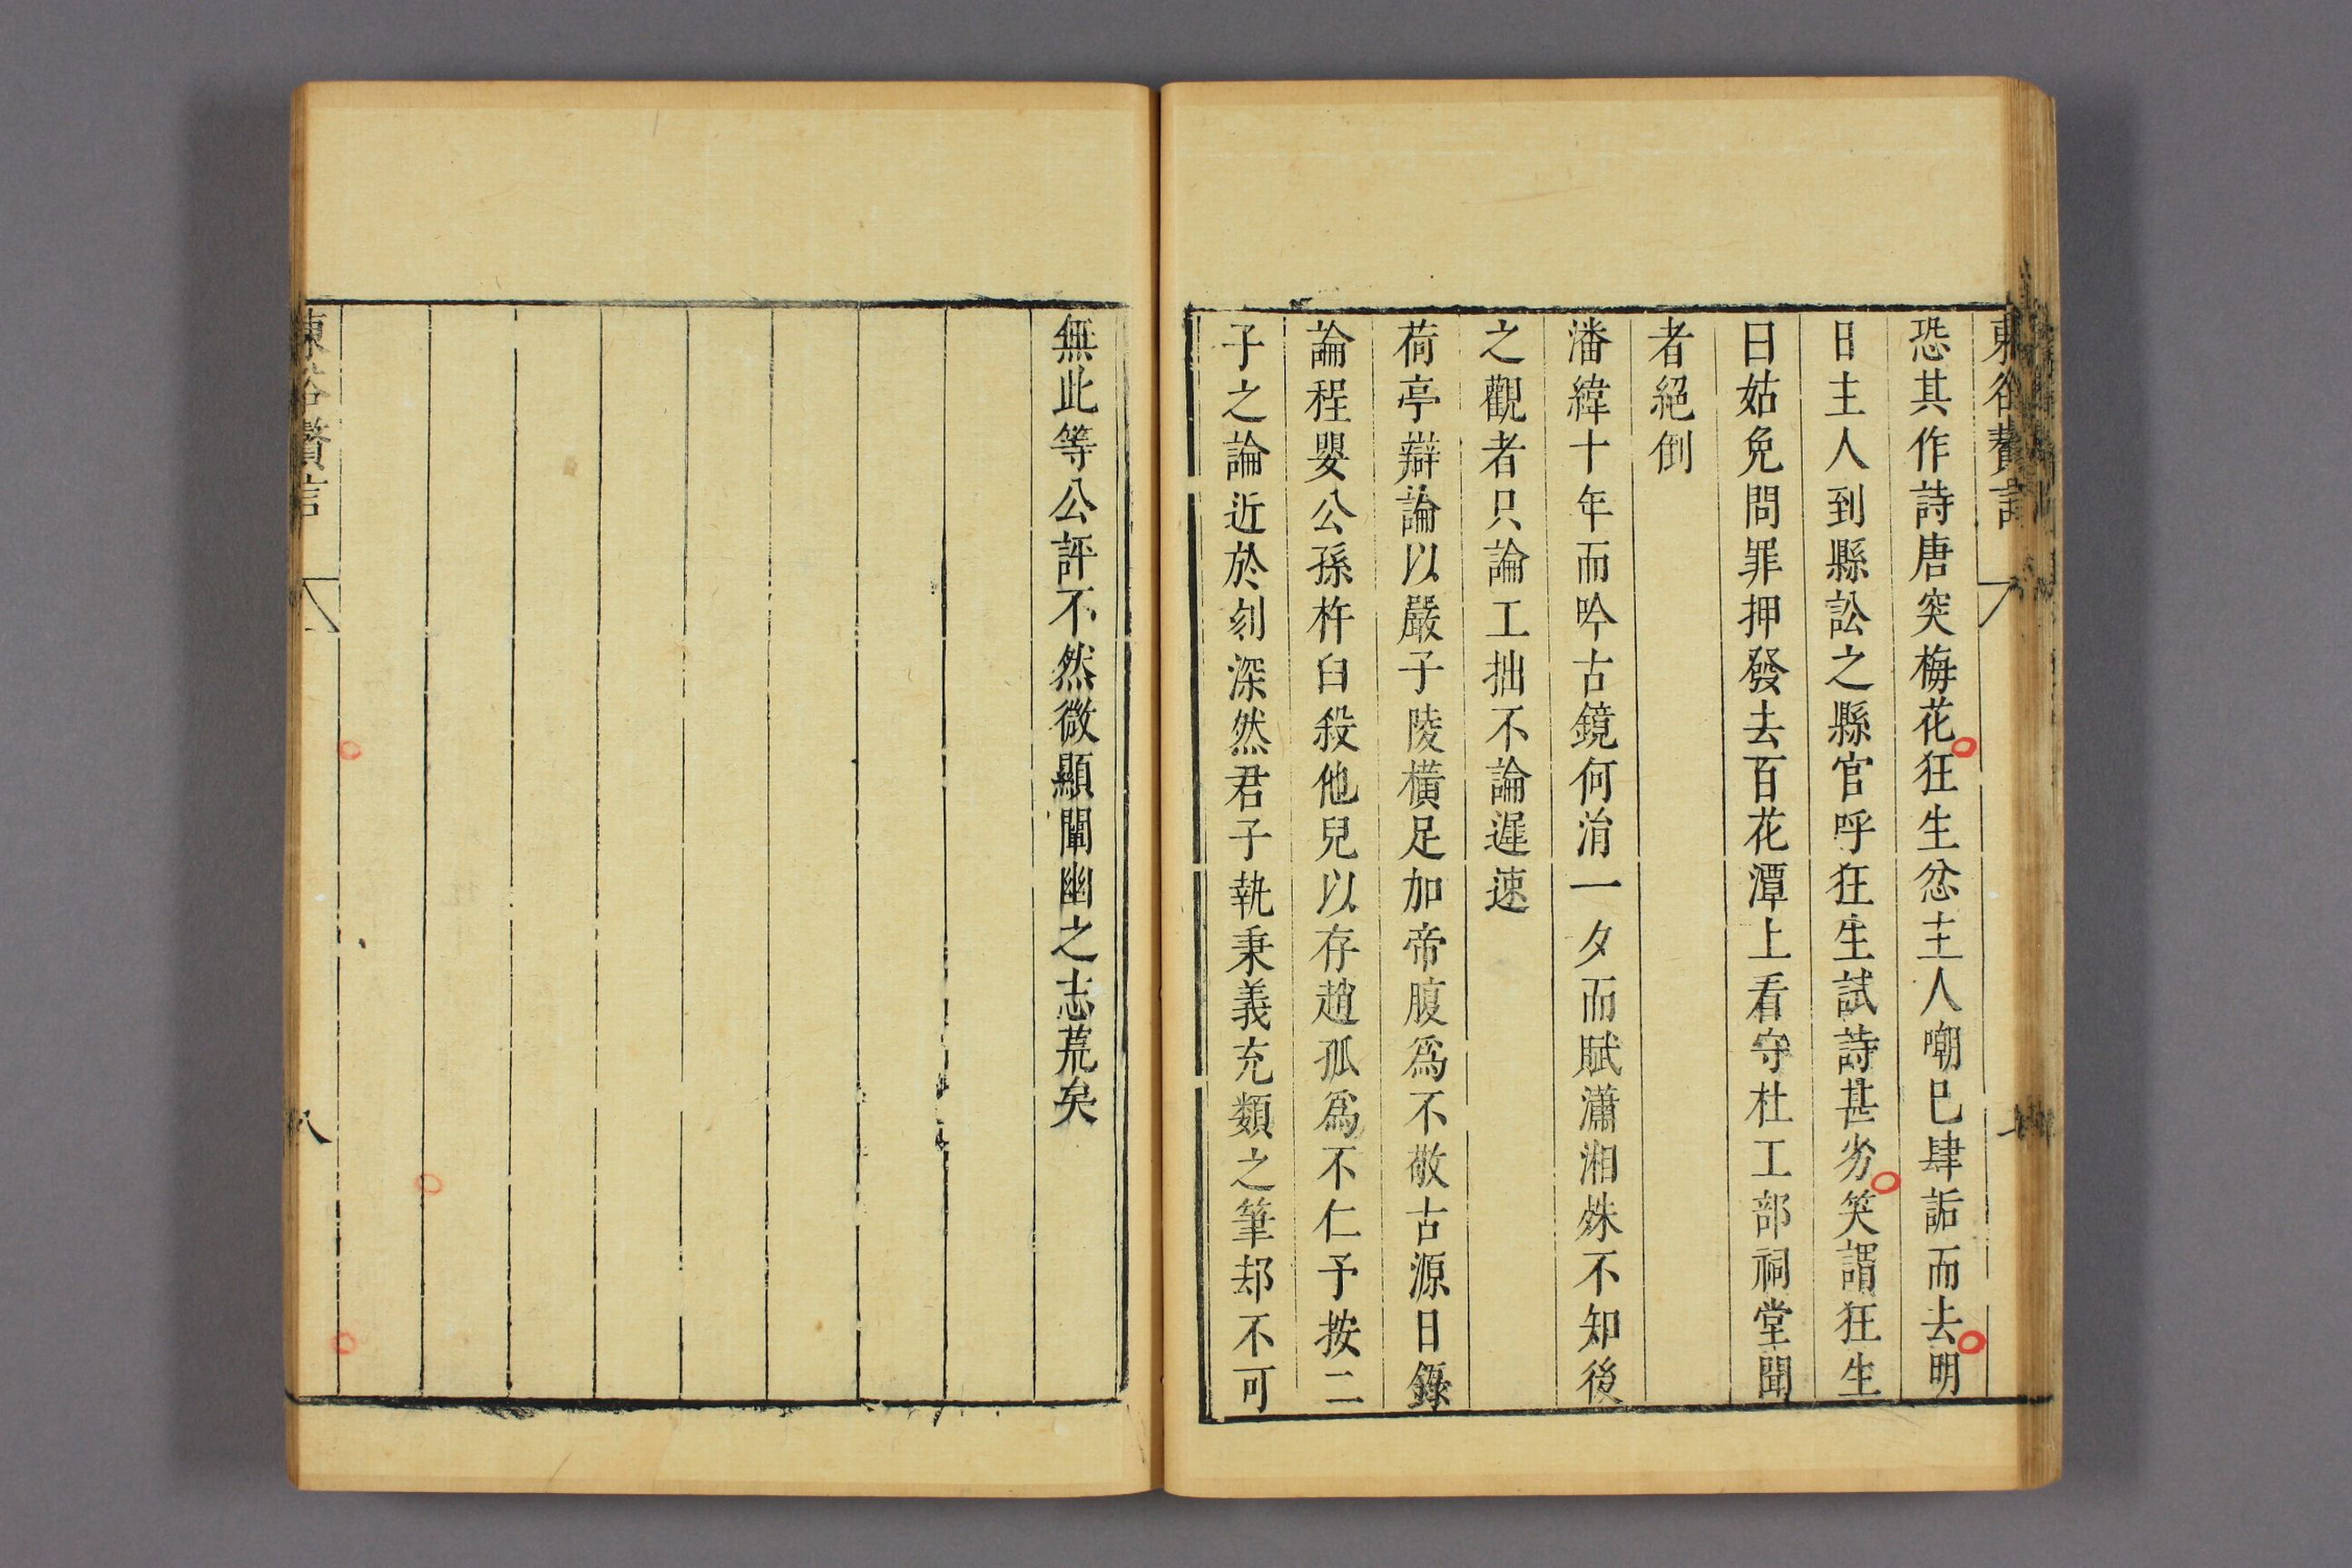 東谷贅言
恐其作詩唐突梅花狂生忿主人嘲已肆詬而去明
日主人到縣訟之縣官呼狂生試詩甚劣笑謂狂生
曰姑免問罪押發去百花潭上看守杜工部祠堂聞
者絕倒
潘緯十年而吟古鏡何涓一夕而賦瀟湘姝不知後
之觀者只論工拙不論遲速
荷亭辯論以嚴子陵橫足加帝腹爲不敬古源日錄
論程嬰公孫杵臼殺他兒以存趙孤爲不仁予按二
子之論近於刻深然君子執秉義充類之筆却不可
無此等公評不然微顯闡幽之志荒矣
東谷贅言
八